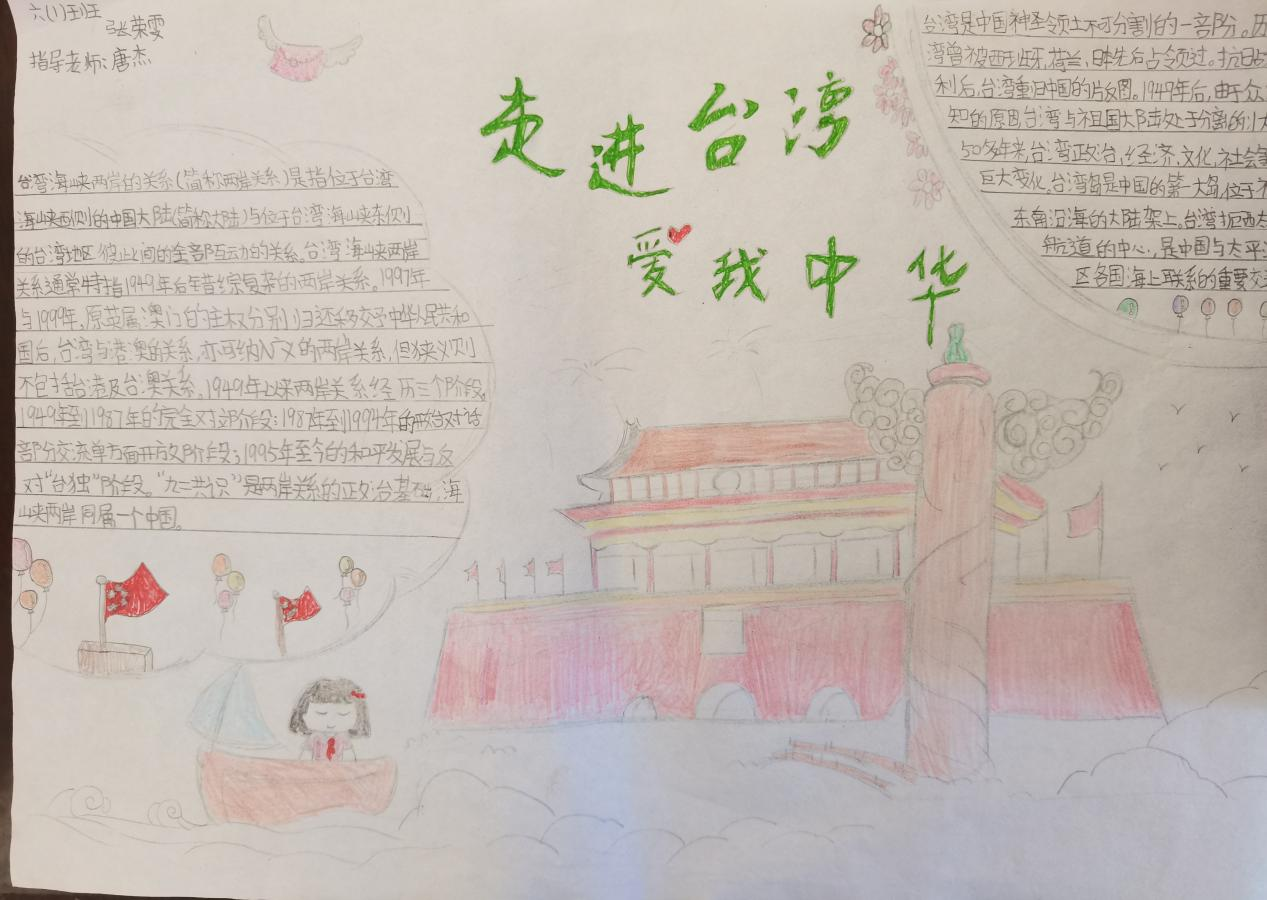 六(1)班
张荣雯
指导老师:唐杰
走进台湾
爱我中华
台湾海峡两岸的关系(简称两岸关系)是指位于台湾
海峡西侧的中国大陆(简称大陆)与位于台湾海峡东侧
的台湾地区彼此间的全部互动的关系。台湾海峡两岸
关系通常特指1949年后错综复杂的两岸关系。1997年
与1999年,原英属澳门的主权分别归还移交予中华人民共和
国后,台湾与港澳的关系,亦可纳入广义的两岸关系,但狭义则
不包括台港及台澳关系。1949年以来两岸关系经历三个阶段。
1949年到1987年的完全对立郎阶段;1987年到1994年的政治对话
部分交流单方面开放阶段;1995年至今的和平发展与反
对“台独”阶段。“九二共识”是两岸关系的政治基础,海
峡两岸同属一个中国。
台湾是中国神圣领土不可分割的一部份。历
湾曾被西班牙,荷兰,日本先后占领过。抗日战
利后,台湾重归中国的版图。1949年后,由于众
知的原因台湾与祖国大陆处于分离的
50多年来,台湾政治,经济,文化,社会等
巨大变化。台湾岛是中国的第一大岛,位于
东南沿海的大陆架上。台湾扼西太
航道的中心,是中国与太平洋
区各国海上联系的重要交